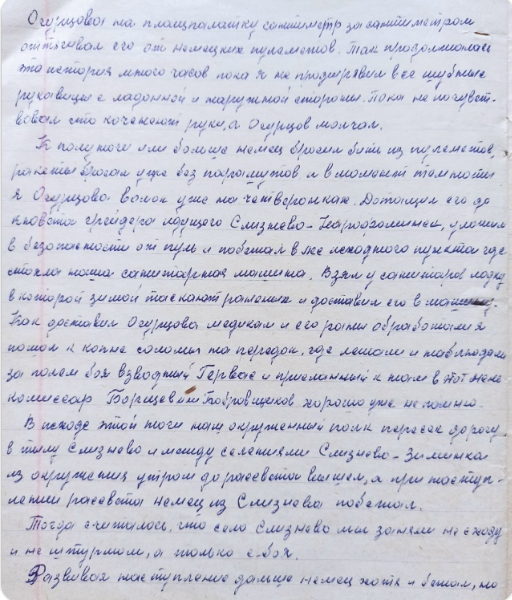 Огурцова на плащпалатку сантиметр за сантиметром
оттягивал его от немецких пулеметов. Так продолжалась
эта история много часов пока я не продырявил все шубные
рукавицы с ладонной и наружной стороны. Пока не почувст-
вовал что коченеют руки, а Огурцов молчал.
К полуночи или больше немец бросил бить из пулеметов,
ракеты бросал уже без парашутов и в момент темноты
я Огурцова волок уже на четвереньках. Дотащил его до
кювета грейдера идущего Слизнево - 
в безопасности от пуль и побежал в исходного пункта где
стояла наша санитарная машина. Взял у санитаров лодку
в которой зимой таскают раненых и доставил его в машину.
Как доставил Огурцова медикам и его раны обработали я
пошел к копне соломы на передок, где лежали и наблюдали
за полем боя взводный и присланный к нам в этот
комиссар или Бобровщиков хорошо уже не помню.
В исходе этой ночи наш окруженный полк пересек дорогу
в тылу Слизнево и между селениями Слизнево - Зиминка
из окружения утром до рассвета вышел, а при наступ-
лении рассвета немец из Слизнева побежал.
Тогда считалось, что село Слизнево мы заняли не сходу
и не штурмом, а только с боя.
Развивая наступление дальше немец хотя и бежал, но